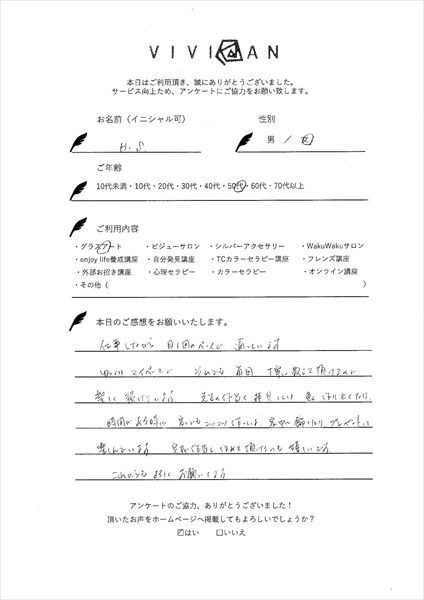 VIVIAN
本日はご利用頂き、誠にありがとうございました。
サービス向上ため、アンケートにご協力をお願い致します。
お名前（イニシャル可）
性別
H.S.
男 / 女
ご年齢
10代未満・10代・20代・30代・40代・50代・60代・70代以上
ご利用内容
・グラスアート ・ビジューサロン ・シルバーアクセサリー ・WakuWakuサロン
・enjoy life養成講座 ・自分発見講座 ・TCカラーセラピー講座 ・フレンズ講座
・外部お招き講座 ・心理セラピー ・カラーセラピー ・オンライン講座
・その他（ ）
本日のご感想をお願いいたします。
仕事しながら 月1回のペースで 通っています
マイペースで それでも 毎回 丁寧に教えて頂けるので
楽しく 続けています
時間がある時に 家でもコツコツ作ったり、家中に飾ったり プレゼントして
楽しんでいます 先生に作品を ほめて頂けるのも 嬉しいです
これからもよろしくお願いします
アンケートのご協力、ありがとうございました！
頂いたお声をホームページへ掲載してもよろしいでしょうか？
☑はい □いいえ